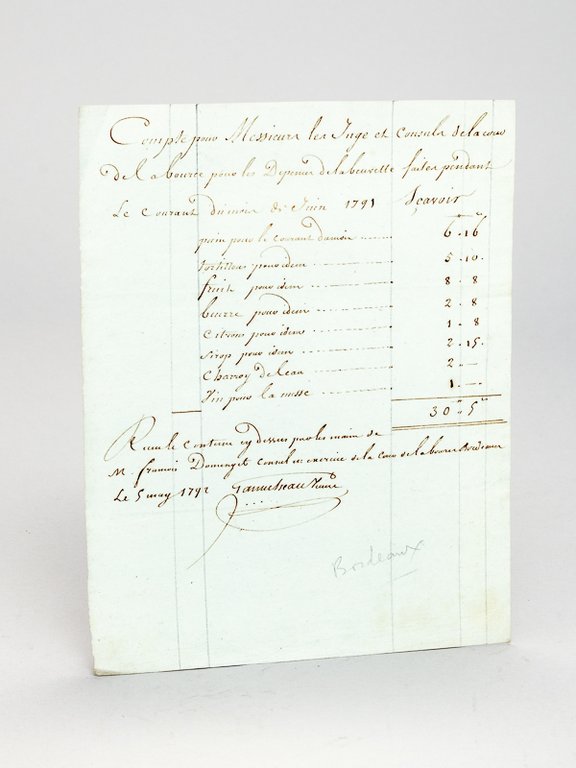 Compte pour Messieurs les Juge et Consuls de la cour
de la bource pour les Depences de la beuvette faites pendant
Le Courant du mois de Juin 1791 Sçavoir
pain pour le courant du mois 6 . 16
tortillons pour idem 5 . 10
fruit pour idem 8 . 8
beurre pour idem 2 . 8
Citrons pour idem 1 . 8
Sirop pour idem 2 . 15
Charroy de l'eau 2 . —
Vin pour la messe 1 . —
30 " 5 "
Recu le contenu cy dessus par les main de
M. francois Domenget Consul en exercice de la Cour de la bource Bordeaux
Le 5 may 1792
Bordeaux